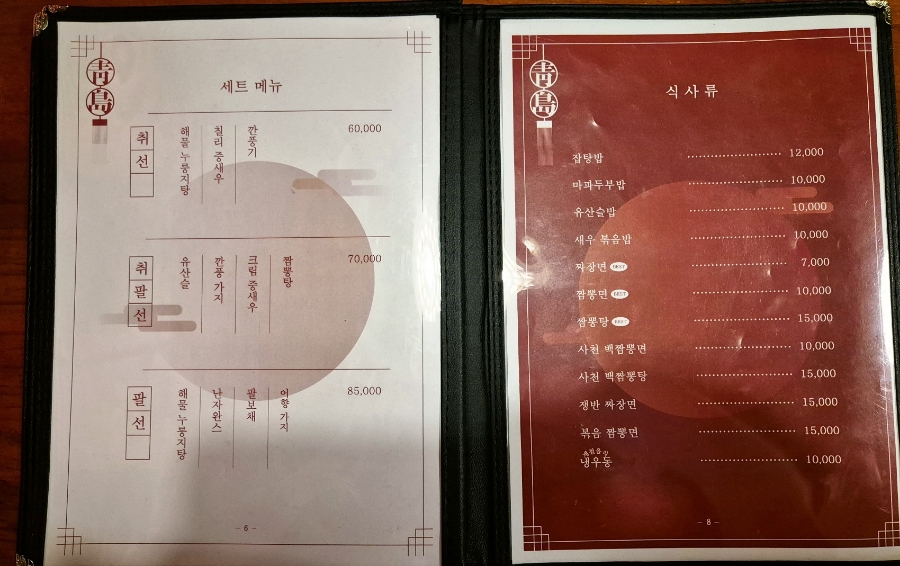 靑島
세트 메뉴
취선
해물 누룽지탕
칠리 중새우
깐풍기
60,000
취팔선
유산슬
깐풍 가지
크림 중새우
짬뽕탕
70,000
팔선
해물 누룽지탕
난자완스
팔보채
어향 가지
85,000
- 6 -
靑島
식사류
잡탕밥 12,000
마파두부밥 10,000
유산슬밥 10,000
새우 볶음밥 10,000
짜장면 BEST 7,000
짬뽕면 BEST 10,000
짬뽕탕 BEST 15,000
사천 백짬뽕면 10,000
사천 백짬뽕탕 15,000
쟁반 짜장면 15,000
볶음 짬뽕면 15,000
냉우동 10,000
- 8 -